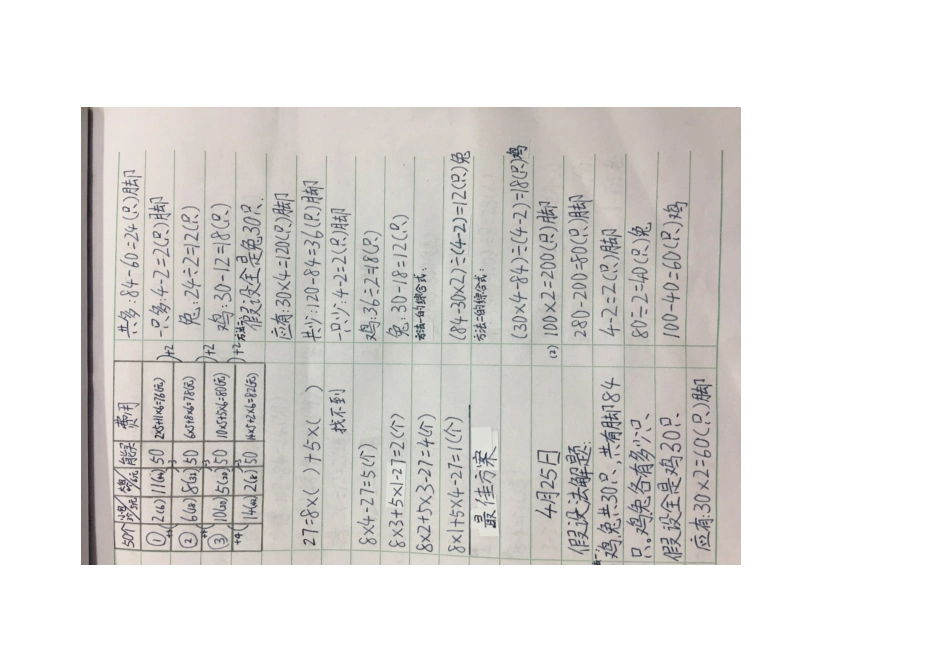 50个 能买 费用
① 2(6) 11(44) 50 2×5+11×6=76(元)
② 6(18) 8(32) 50 6×5+8×6=78(元)
③ 10(30) 5(20) 50 10×5+5×6=80(元)
14(42) 2(8) 50 14×5+2×6=82(元)
27=8×( )+5×( )
找不到
8×4-27=5(个)
8×3+5×1-27=2(个)
8×2+5×3-27=4(个)
8×1+5×4-27=1(个)
最佳方案
4月25日
假设法解题:
鸡兔共30只,共有脚84
只。鸡兔各有多少只
假设全是鸡30只
应有:30×2=60(只)脚
共多:84-60=24(只)脚
一只多:4-2=2(只)脚
兔:24÷2=12(只)
鸡:30-12=18(只)
方法二:
假设全是兔30只
应有:30×4=120(只)脚
共少:120-84=36(只)脚
一只少:4-2=2(只)脚
鸡:36÷2=18(只)
兔:30-18=12(只)
方法一的综合式:
(84-30×2)÷(4-2)=12(只)兔
方法二的综合式:
(30×4-84)÷(4-2)=18(只)鸡
(2) 100×2=200(只)脚
280-200=80(只)脚
4-2=2(只)脚
80÷2=40(只)兔
100-40=60(只)鸡